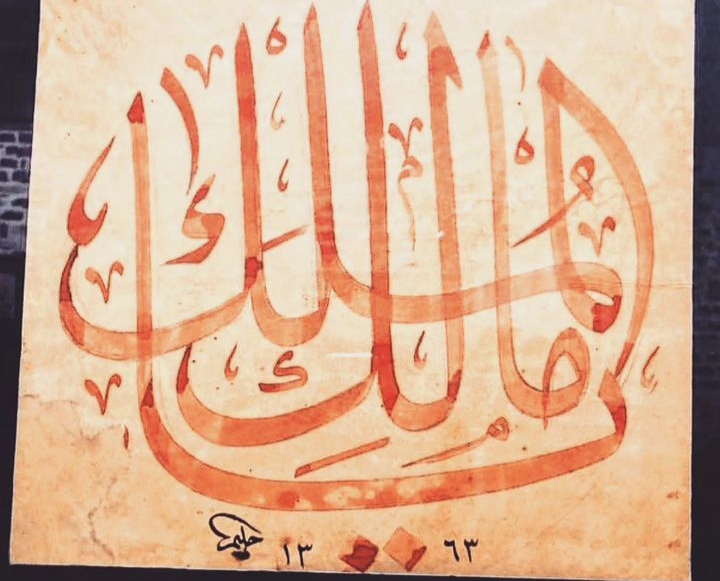 مَالِكُ الْمُلْكِ
حليم ١٣ ٦٣